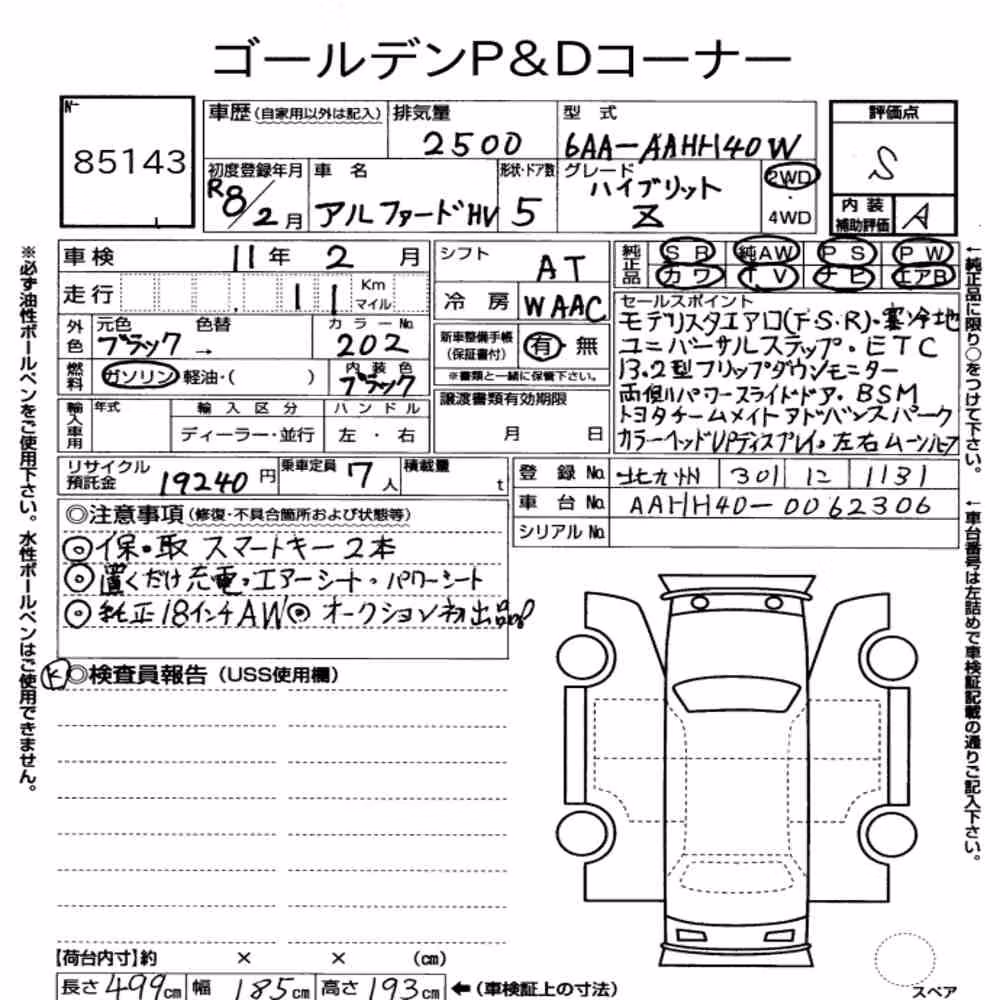 ゴールデンP&Dコーナー
№
85143
車歴 (自家用以外は記入)
排気量
2500
型式
6AA-AAHH40W
評価点
S
初度登録年月
R8/2月
車名
アルファードHV
形状・ドア数
5
グレード
ハイブリット
Z
2WD
・
4WD
内装
補助評価
A
車検 11年 2月
走行 11 Km
マイル
外色
元色 色替
ブラック →
カラーNo.
202
燃料
ガソリン 軽油・( )
内装色
ブラック
輸入車用
年式
輸入区分
ディーラー・並行
ハンドル
左・右
シフト
AT
冷房
WAAC
新車整備手帳
(保証書付)
有・無
※書類と一緒に保管下さい。
譲渡書類有効期限
月 日
純正品
SR 純AW PS PW
カワ TV ナビ エアB
セールスポイント
モデリスタエアロ(F・S・R)・寒冷地
ユニバーサルステップ・ETC
13.2型フリップダウンモニター
両側パワースライドドア・BSM
トヨタチームメイトアドバンスパーク
カラーヘッドUPディスプレイ・左右ムーンルーフ
リサイクル
預託金
19240円
乗車定員
7人
積載量
t
登録No. 北九州 301 に 1131
車台No. AAHH40-0062306
シリアルNo.
◎注意事項 (修復・不具合箇所および状態等)
◎保・取 スマートキー2本
◎置くだけ充電・エアーシート・パワーシート
◎純正18インチAW◎オークション初出品
◎検査員報告 (USS使用欄)
【荷台内寸】約 × × (cm)
長さ 499cm 幅 185cm 高さ 193cm ←(車検証上の寸法)
スペア
※必ず油性ボールペンをご使用下さい。水性ボールペンはご使用できません。
←純正品に限り○をつけて下さい。
←車台番号は左詰めで車検証記載の通りご記入下さい。